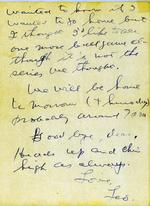 wanted to know if I
wanted to go home but
I thought I'd like to see
one more ball game al-
though it is not the
series we thought.
We will be home
to-morrow (Thursday)
probably around 7
Good bye, dear,
Heads up and chin
high as always.
Love,
Leo.